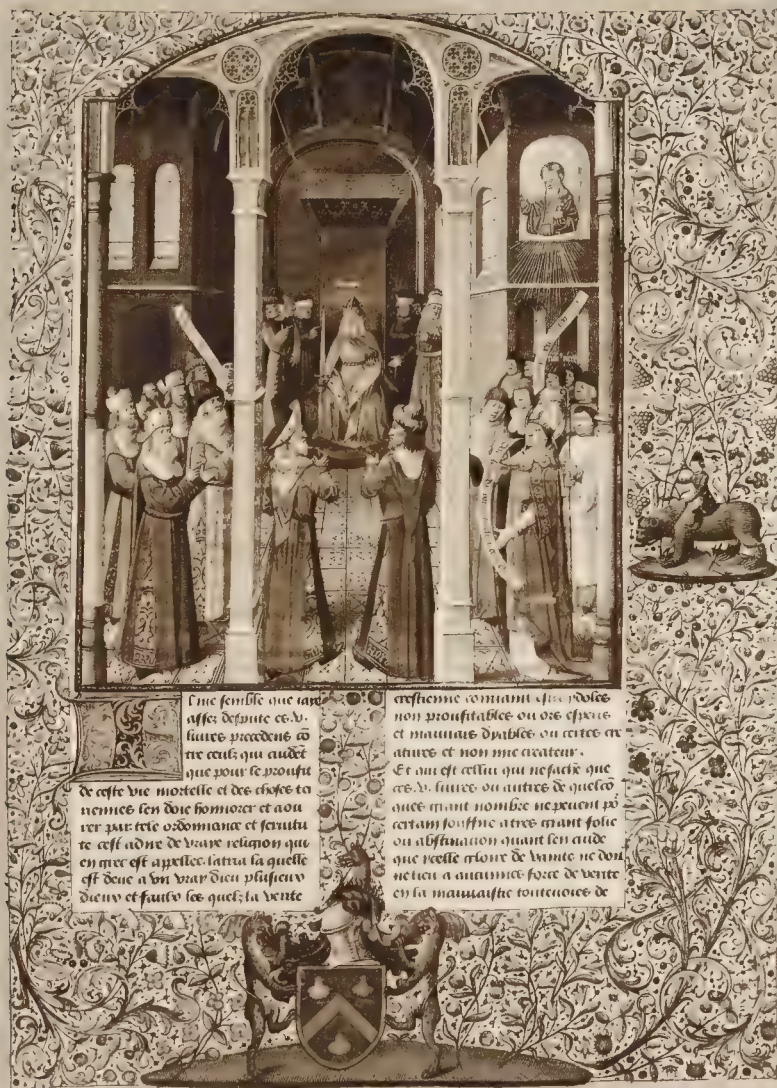 l me semble que iay
assez despute es .v.
liures precedens co
tre ceulz qui cuidet
que pour le proufit
de ceste vie mortelle et des choses ter
riennes len doie honnorer et aou
rer par tele ordonnance et seruitu
te cest adire de vraye religion qui
en grec est appellee latria la quelle
est deue a vn vray dieu plusieurs
dieux et faulx les quelz la verite
crestienne conuaint estre ydoles
non proufitables ou ors esperis
et mauuais dyables ou certes cre
atures et non mie createur.
Et qui est cellui qui ne sache que
ces .v. liures ou autres de quelco
ques grant nombre ne peuent po
certain souffire a tres grant folie
ou obstination quant len cuide
que icelle gloire de vanite ne don
ne lieu a aucunes force de verite
en la mauuaistie toutenoies de